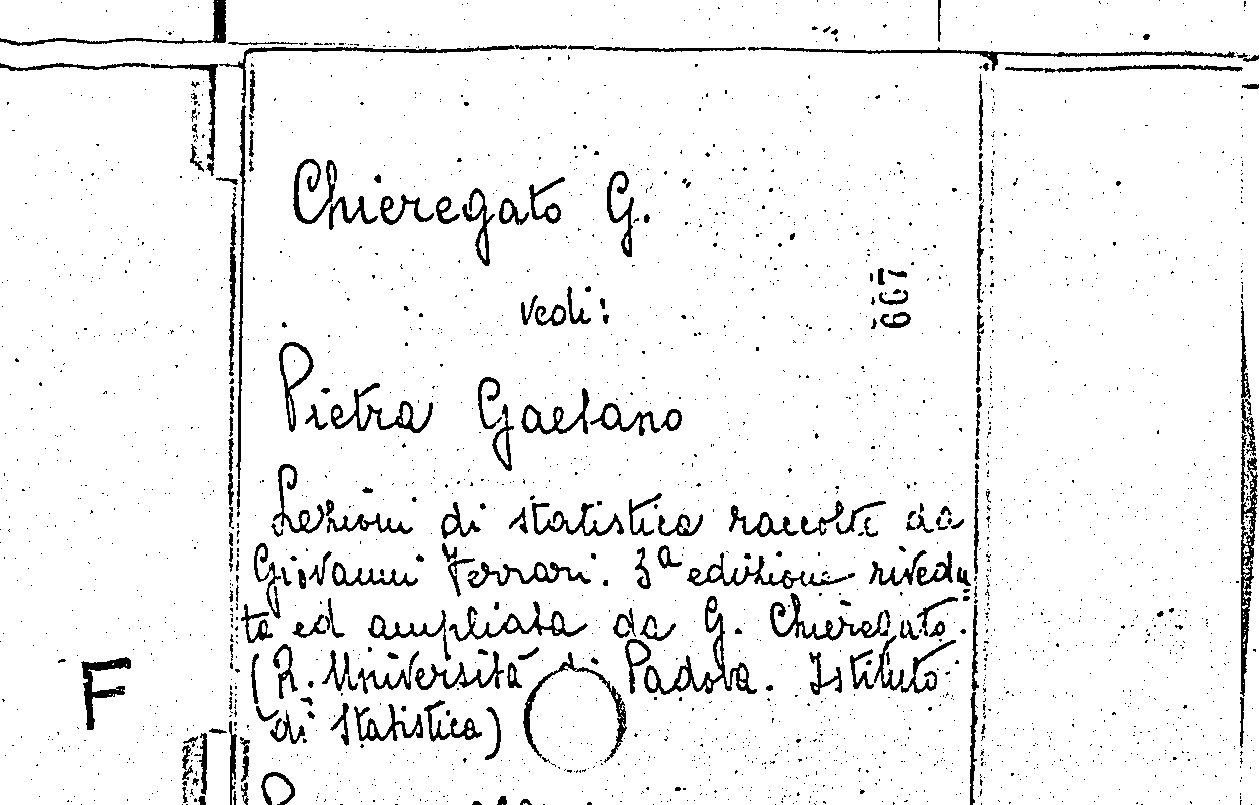 Chieregato G.
667
vedi:
Pietra Gaetano
Lezioni di statistica raccolte da
Giovanni Ferrari. 3ª edizione rivedu
ta ed ampliata da G. Chieregato.
(R. Università di Padova. Istituto
di Statistica)
F